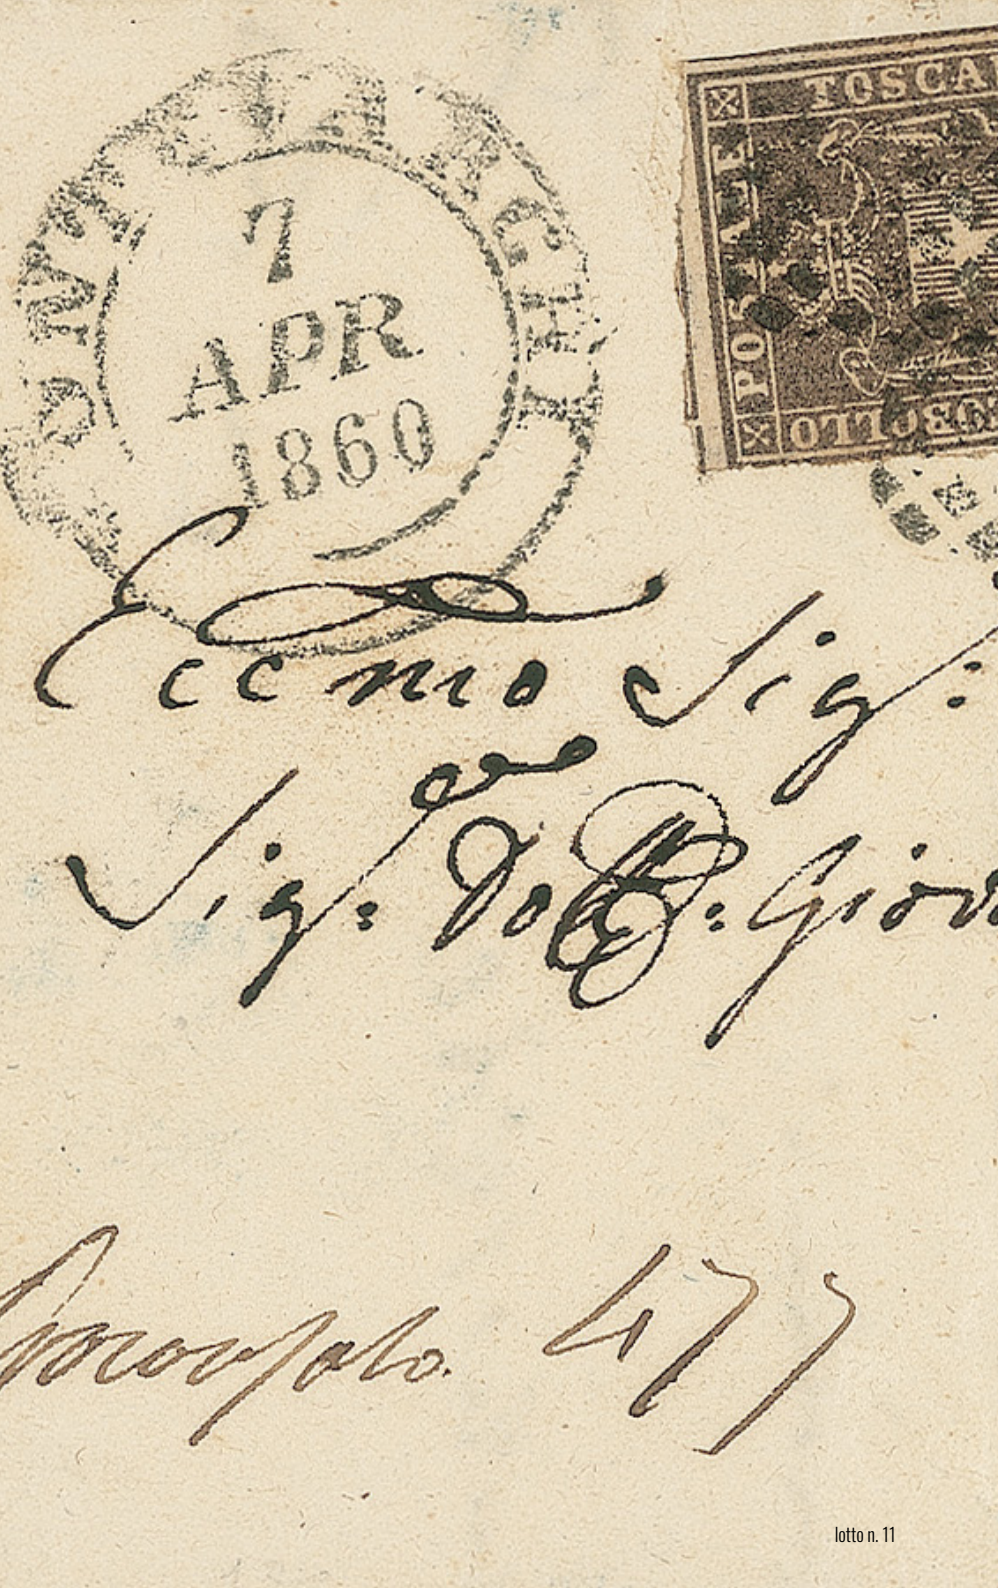 7
APR
1860
TOSCA
POSTALE
BOLLO
Eccmo Sig:
Sig: Dott: Giov
477
lotto n. 11